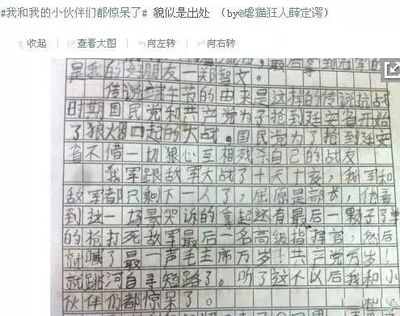 #我和我的小伙伴们都惊呆了# 貌似是出处 （by@虐猫狂人薛定谔）
收起 查看大图 向左转 向右转
是我的朋友一郑智文。
传说端午节的由来是这样的传说抗战
时期国民党和共产党为了抢到延安省开始
了狼烟四起的大战。国民党为了抢到延安
省不惜一切狠心互相残杀自己的战友
我军跟敌军大战了十天十夜，我军和
敌军都只剩下一人了，屈原是部长，他看
到这一场景哭诉的拿起还有最后一颗子弹
的枪打死敌军最后一名高级指挥官，然后
就喊了最一声毛主席万岁！共产党万岁！
就跳河自手短路了。听了这不以后我和小
伙伴们都惊呆了。